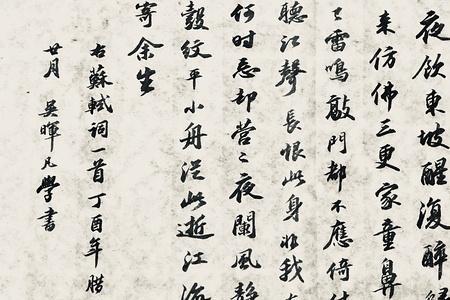 夜飲東坡醒復醉歸
来仿佛三更家童鼻
已雷鳴敲門都不應倚
聽江聲長恨此身非我
何时忘却營〻夜闌風静
縠紋平小舟従此逝江海
寄余生
右蘇軾词一首丁酉年腊
廿月 吴暉凡學書